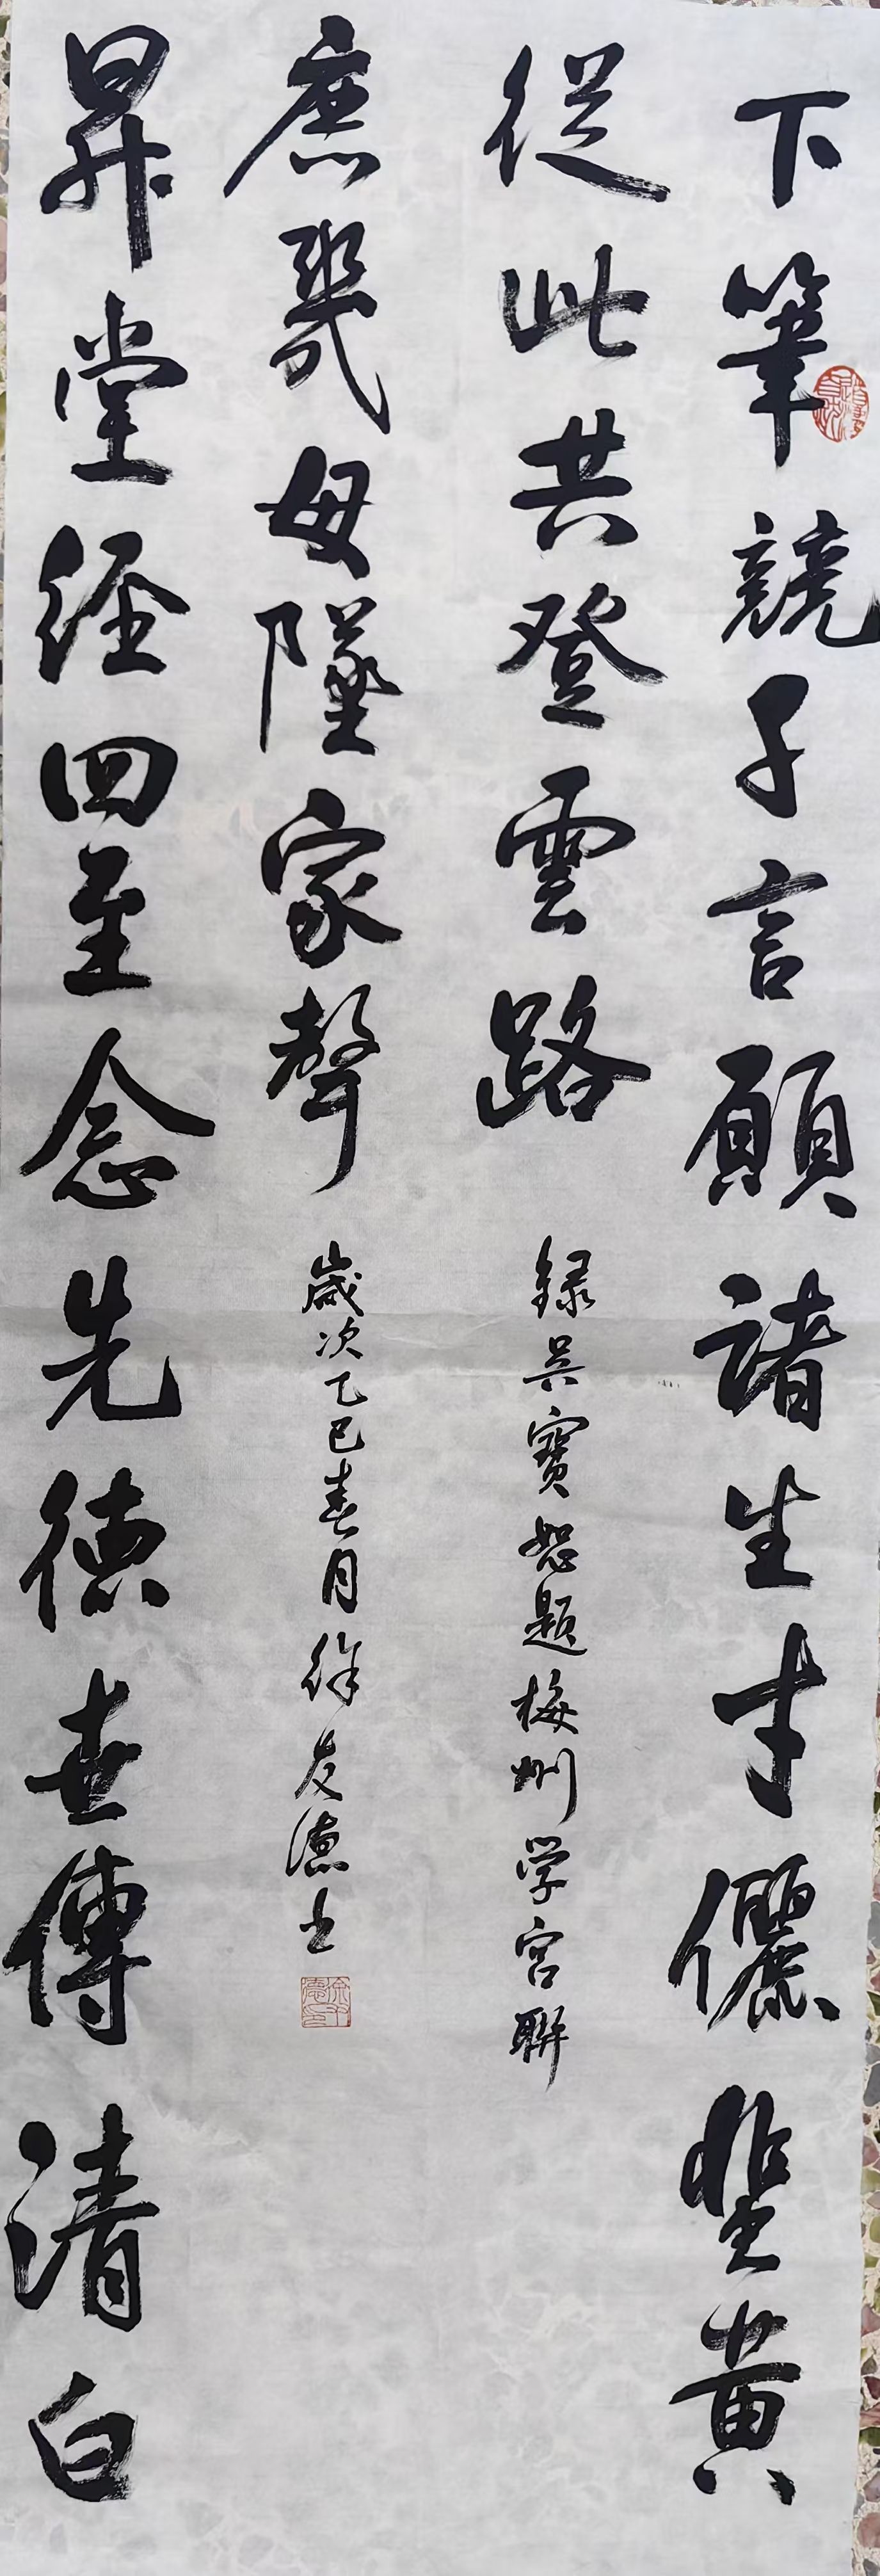 下筆競千言願諸生才儷蜚黄
從此共登雲路
録吴寶恕題梅州学宫聯
昇堂经四至念先德世傳清白
庶幾毋墜家聲
歲次乙巳春月徐友德书
徐友德印